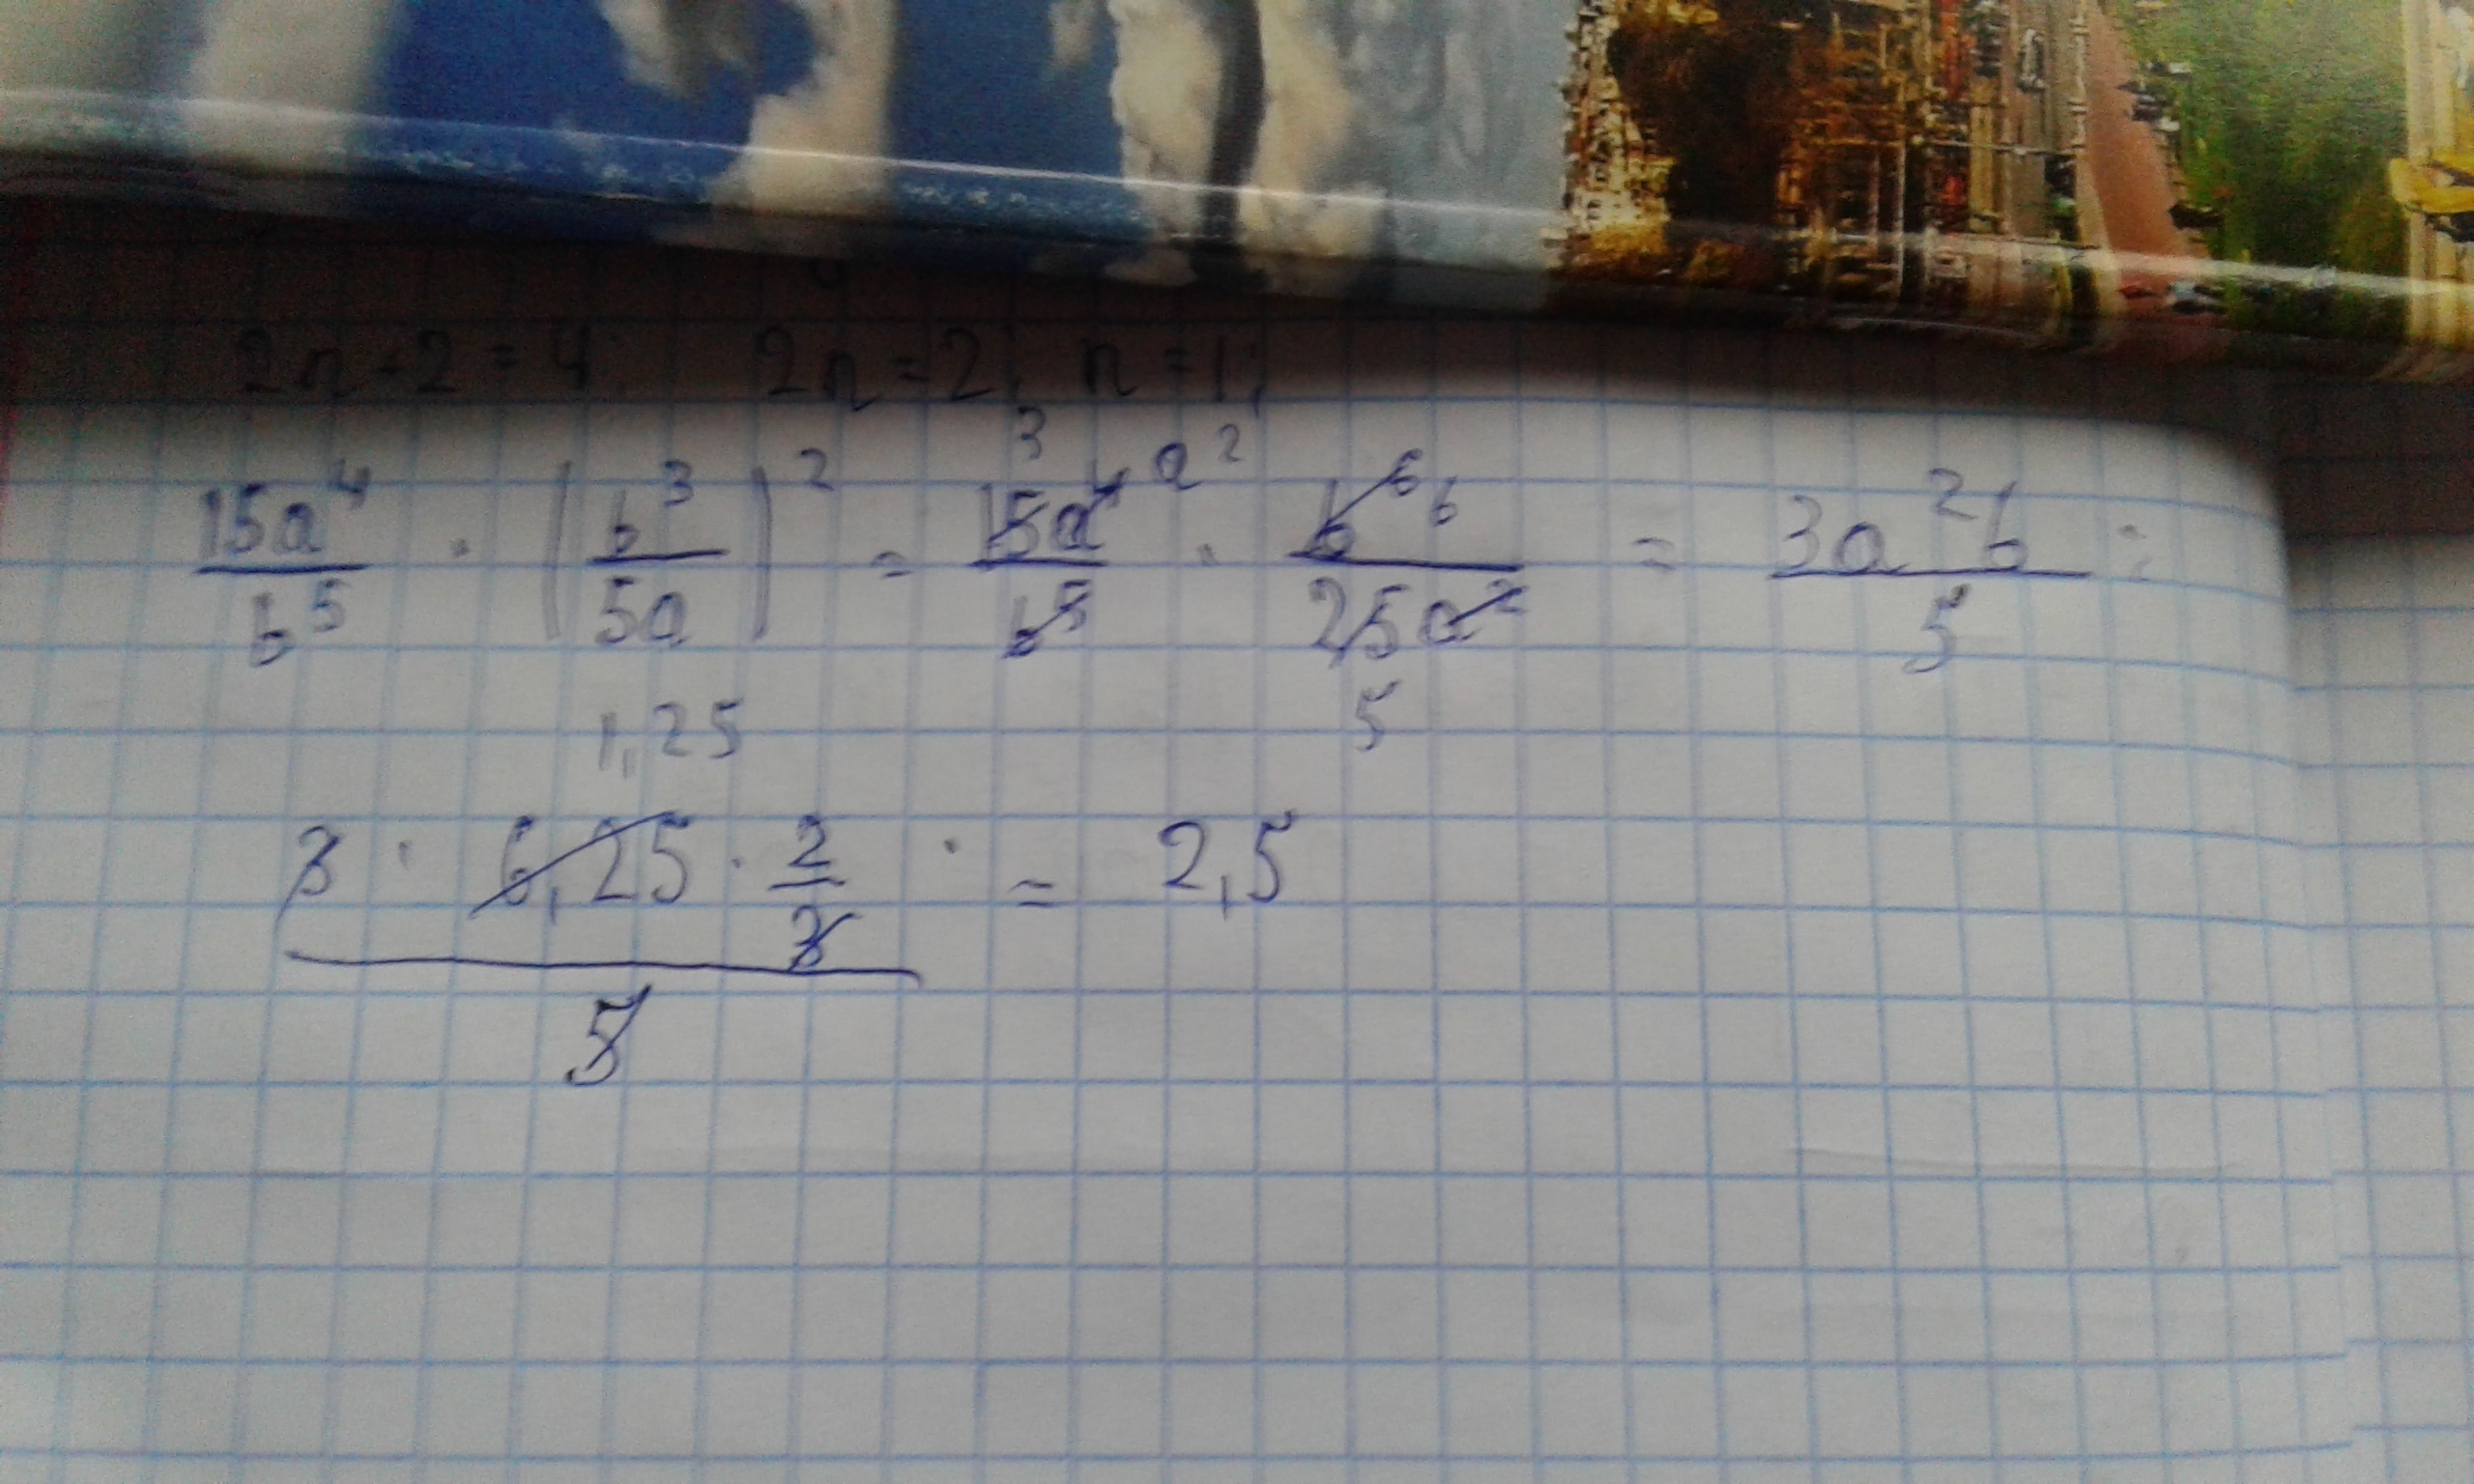 2n+2=4; 2n=2; n=1;
15a⁴/b⁵ · (b³/5a)² = 3 15a⁴ a²/b⁵ · b⁶ b/25a² 5 = 3a²b/5 ;
1,25
3 · 6,25 · 2/3 / 5 · = 2,5